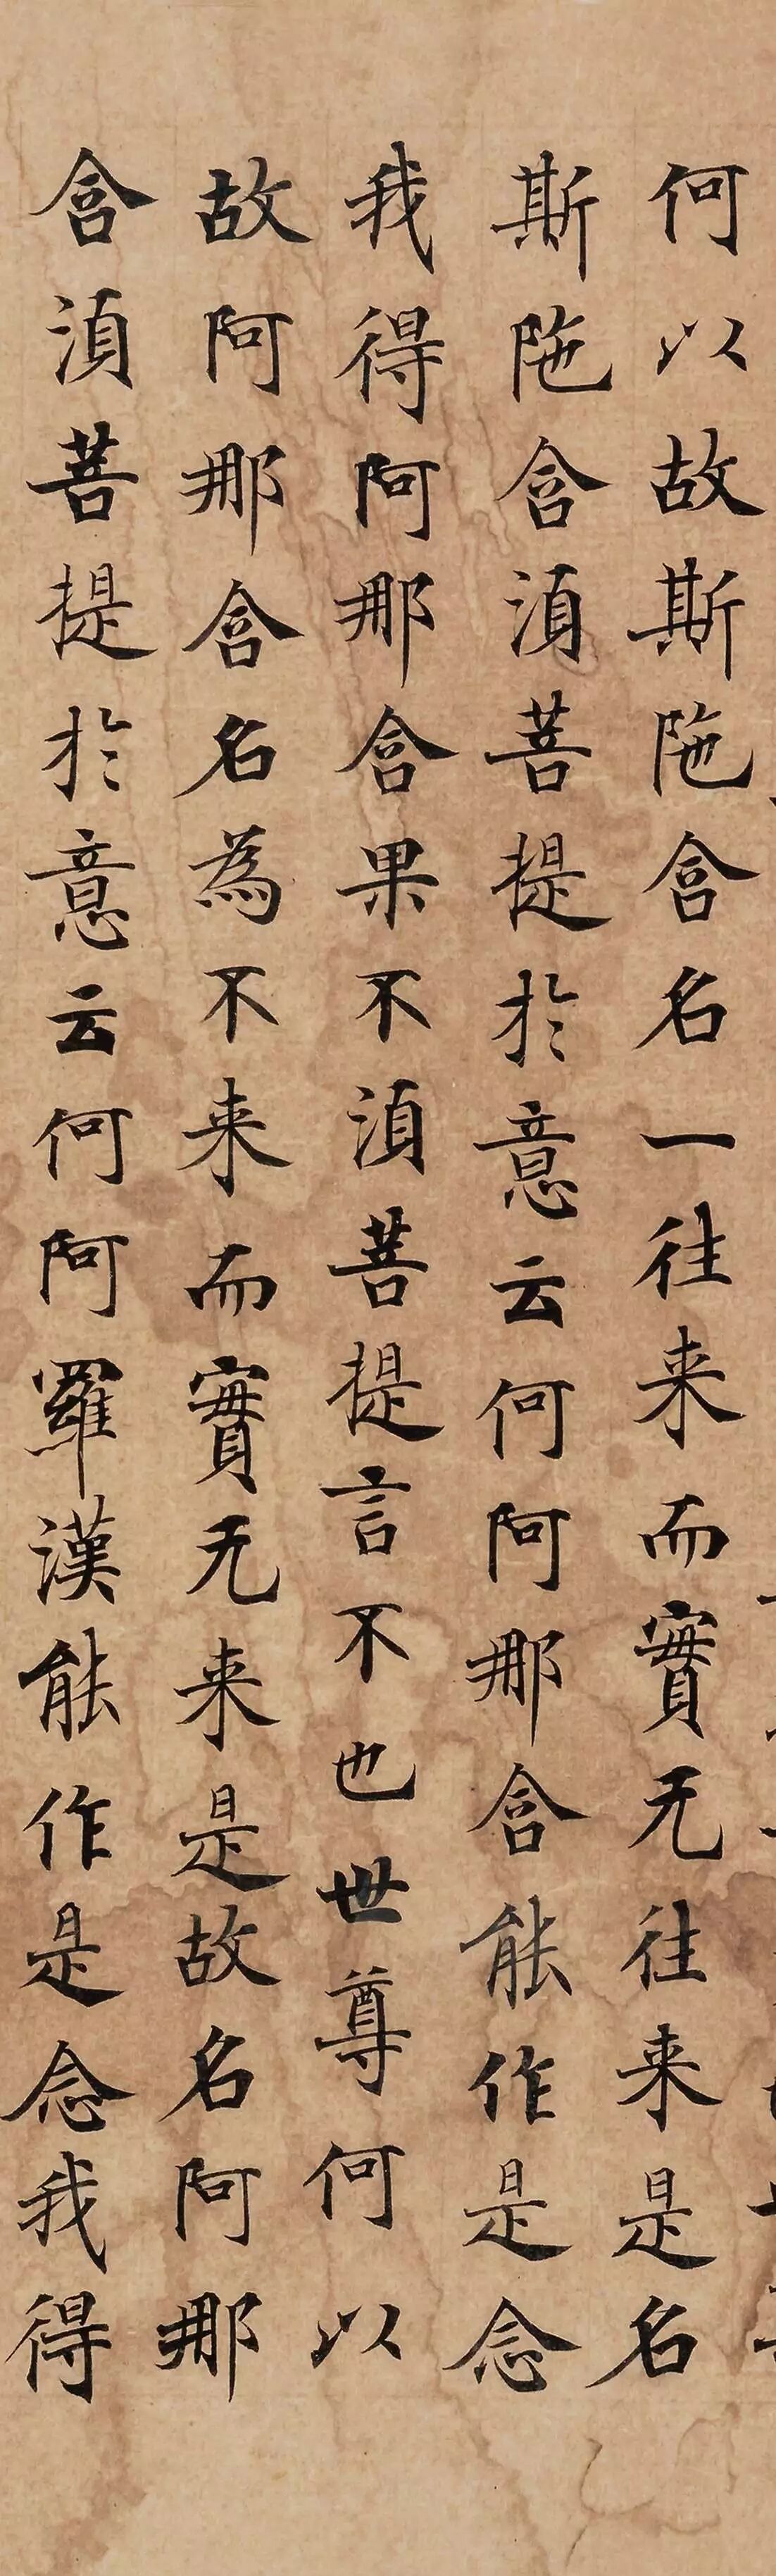 何以故斯陁含名一往来而實无往来是名
斯陁含湏菩提於意云何阿那含能作是念
我得阿那含果不湏菩提言不也世尊何以
故阿那含名為不来而實无来是故名阿那
含湏菩提於意云何阿羅漢能作是念我得